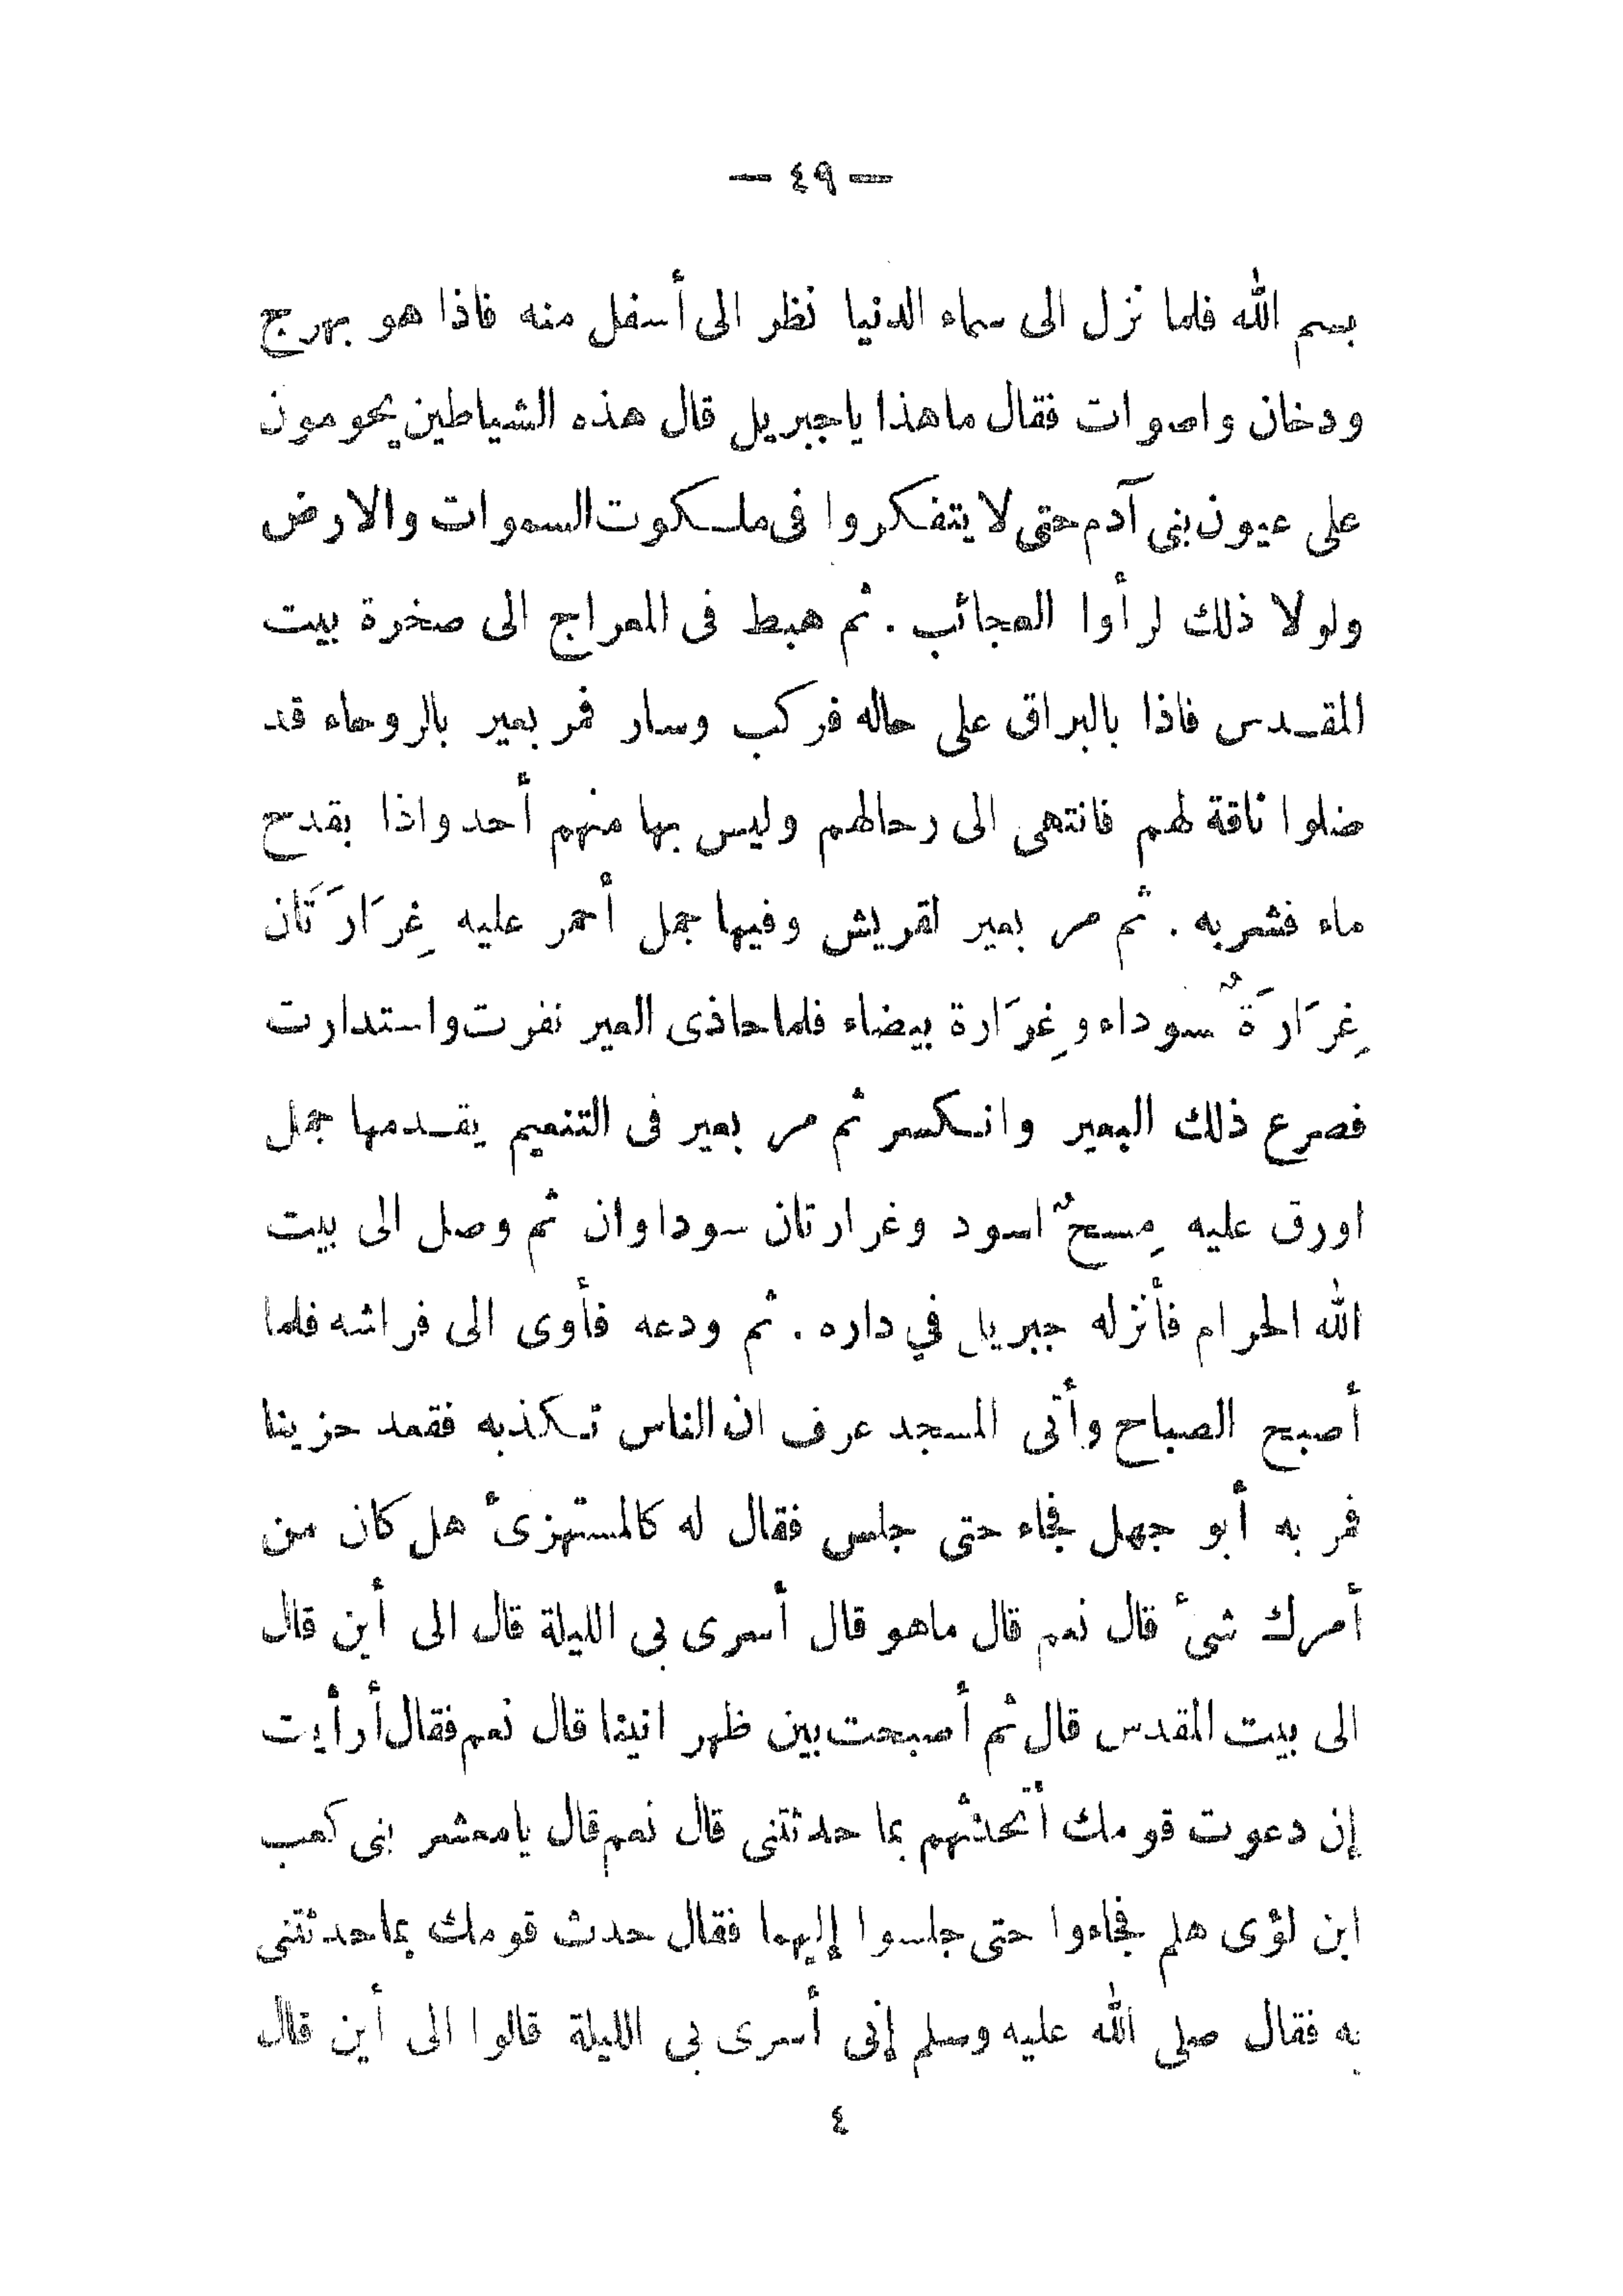 — ٤٩ —
بسم الله فلما نزل الى سماء الدنيا نظر الى أسفل منه فاذا هو بهرج
ودخان واصوات فقال ماهذا ياجبريل قال هذه الشياطين يحومون
على عيون بنى آدم حتى لا يتفكروا فى ملكوت السموات والارض
ولولا ذلك لرأوا العجائب . ثم هبط فى المعراج الى صخرة بيت
المقدس فاذا بالبراق على حاله فركب وسار فمر بعير بالروحاء قد
ضلوا ناقة لهم فانتهى الى رحالهم وليس بها منهم أحد واذا بقدح
ماء فشربه . ثم مر بعير لقريش وفيها جمل أحمر عليه غِرَارَتَان
غِرَارَةٌ سوداء وغِرَارة بيضاء فلما حاذى العير نفرت واستدارت
فصرع ذلك البعير وانكسر ثم مر بعير فى التنعيم يقدمها جمل
اورق عليه مِسحٌ اسود وغرارتان سوداوان ثم وصل الى بيت
الله الحرام فأنزله جبريل في داره . ثم ودعه فأوى الى فراشه فلما
أصبح الصباح وأتى المسجد عرف ان الناس تكذبه فقعد حزينا
فمر به أبو جهل فجاء حتى جلس فقال له كالمستهزئ هل كان من
أمرك شئ قال نعم قال ماهو قال أسرى بى الليلة قال الى أين قال
الى بيت المقدس قال ثم أصبحت بين ظهرانينا قال نعم فقال أرأيت
إن دعوت قومك أتحدثهم بما حدثتنى قال نعم قال يامعشر بنى كعب
ابن لؤى هلم فجاءوا حتى جلسوا إليهما فقال حدث قومك بما حدثتنى
به فقال صلى الله عليه وسلم إنى أسرى بى الليلة قالوا الى أين قال
٤